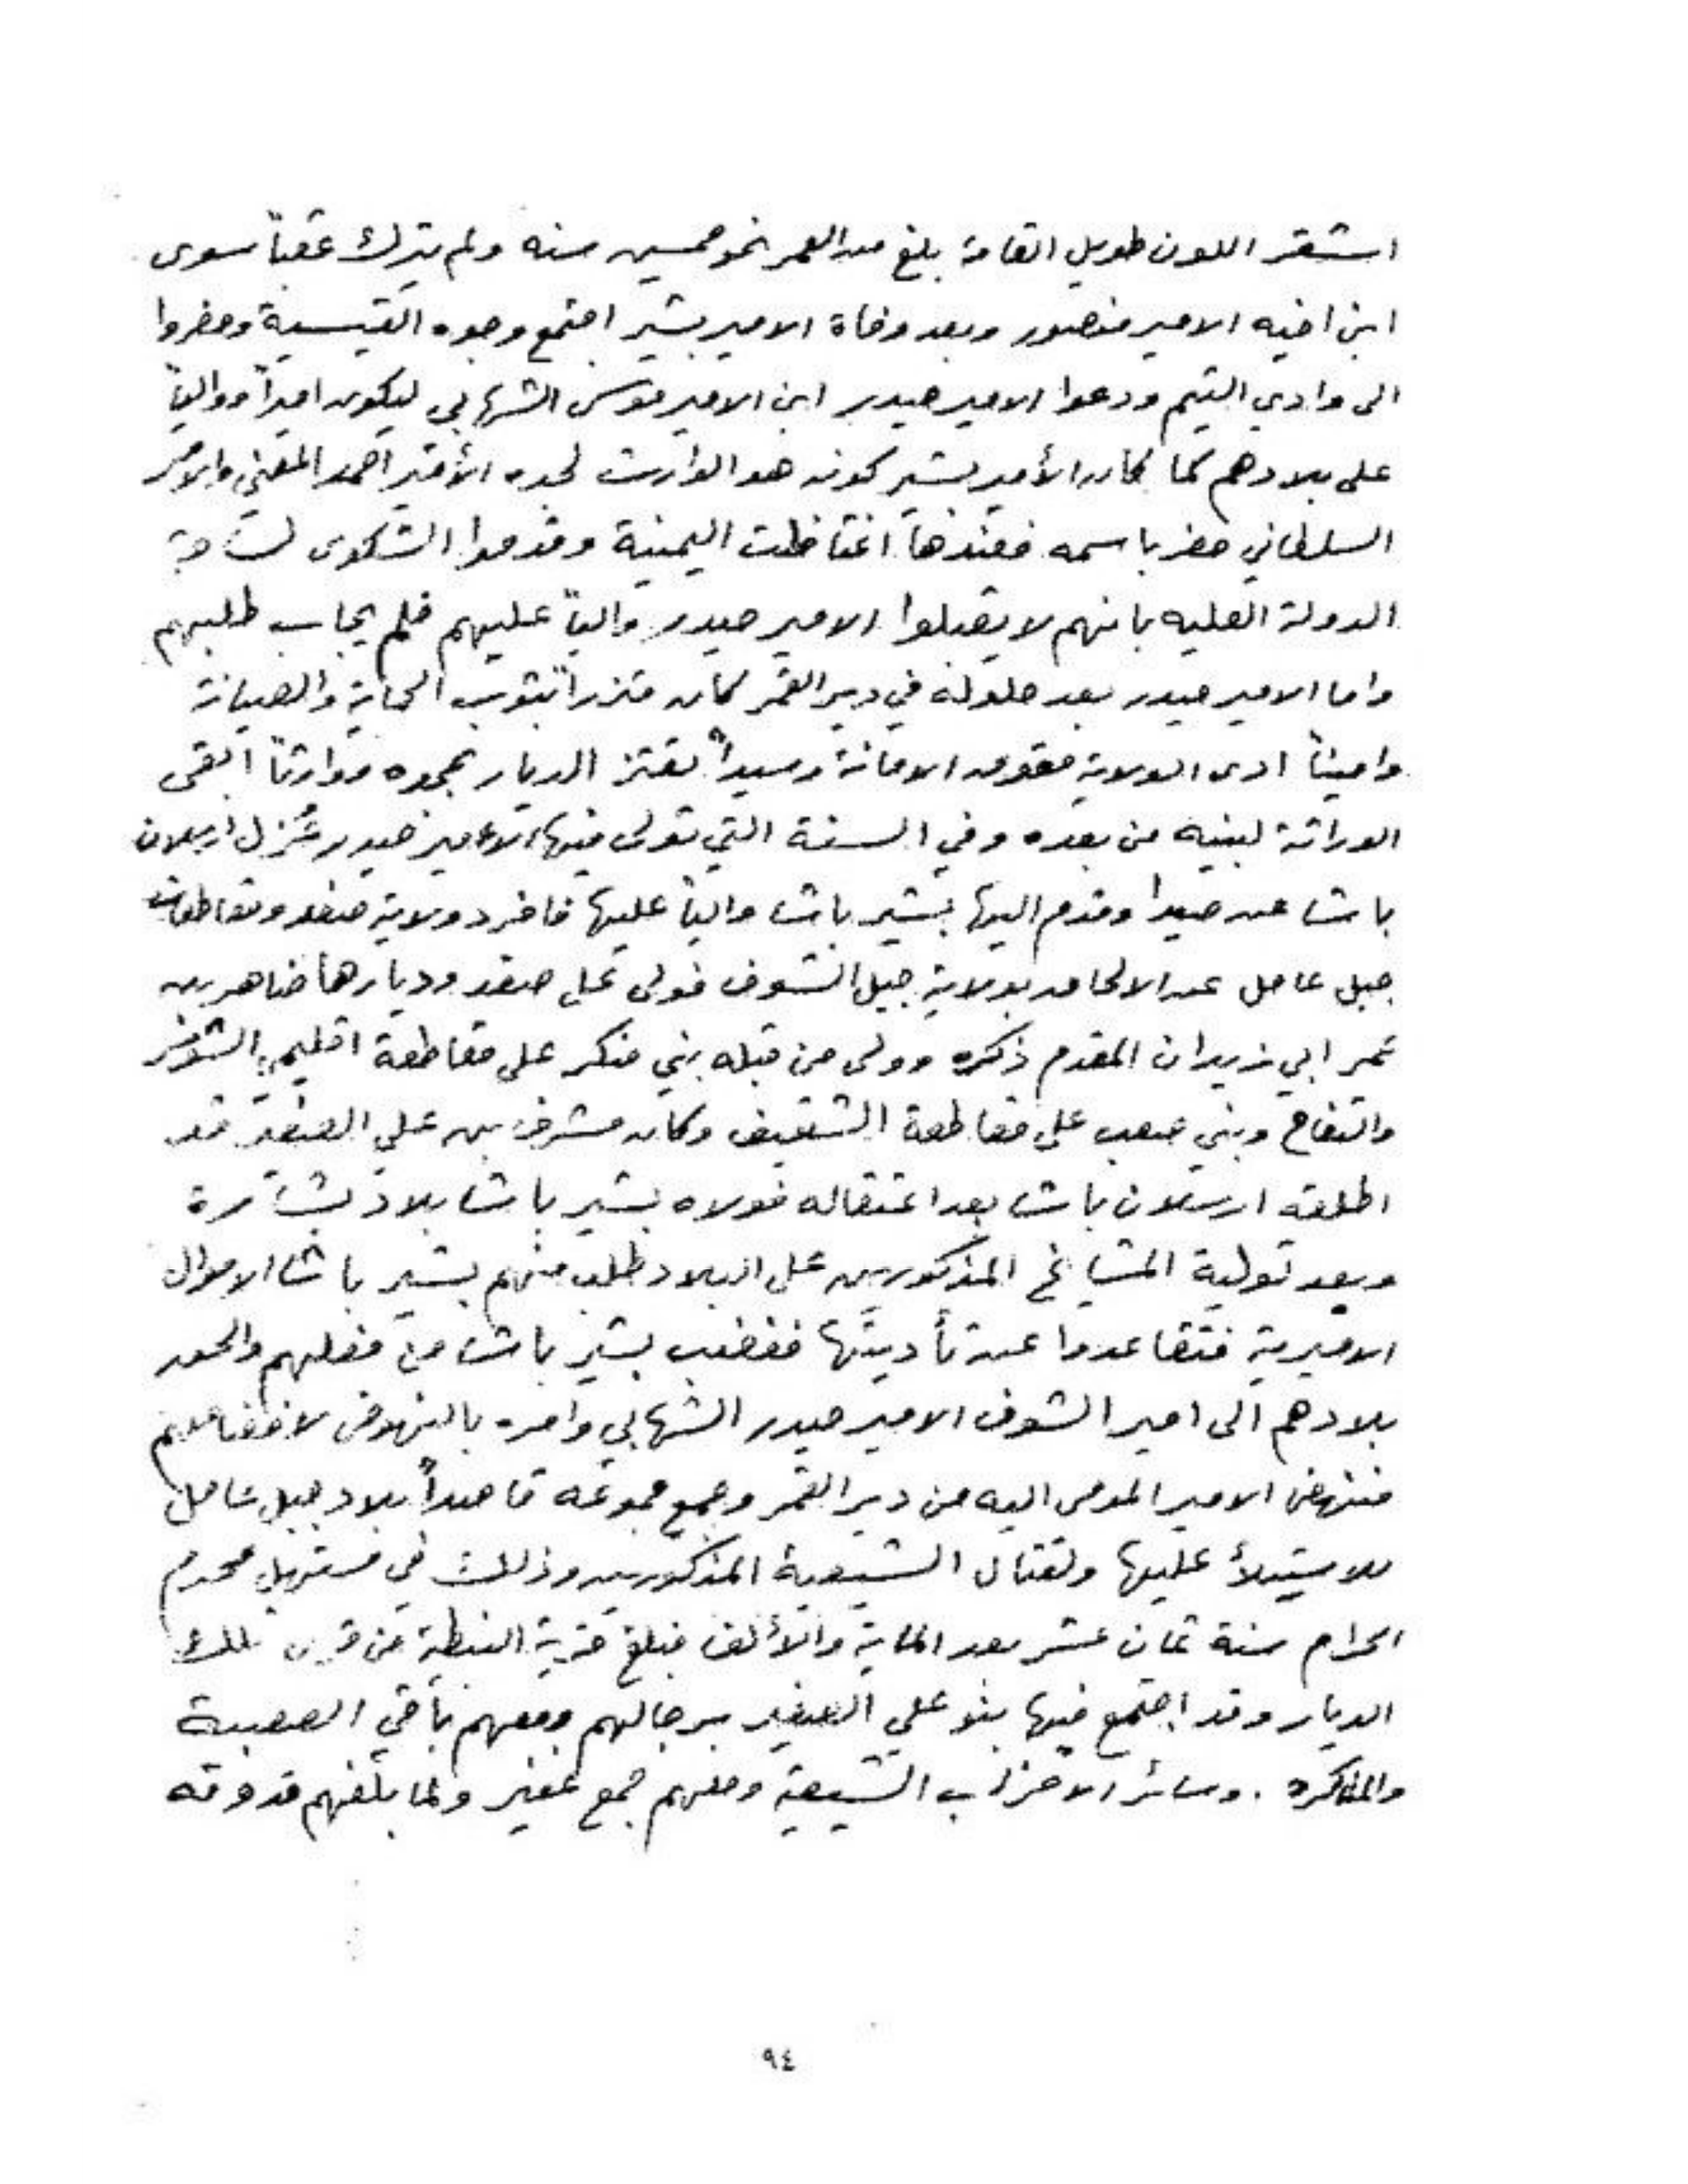 اشقر اللون طويل القامة بلغ من العمر نحو خمسين سنه ولم يترك عقباً سوى
ابن اخيه الامير منصور وبعد وفاة الامير بشير اجتمع وجوه القيسية وحضروا
الى وادي التيم ودعوا الامير حيدر ابن الامير موسى الشهابي ليكون اميراً ووالياً
على بلادهم كما كان الأمير بشير كونه هو الوارث لجده الأمير احمد المعني والامر
السلطاني حضر باسمه فعندها اغتاظت اليمنية وقدموا الشكوى
الدولة العليه بانهم لا يقبلوا الامير حيدر والياً عليهم فلم يجاب طلبهم
واما الامير حيدر بعد حلوله في دير القمر كان متزراً بثوب الحماية والصيانة
واميناً ادى الولاية حقوق الامانة وسيداً تعتز الديار بجده ووارثاً ابقى
الوراثة لبنيه من بعده وفي السنة التي تولى فيها الامير حيدر عُزل ارسلان
باشا عن صيدا وقدم اليها بشير باشا والياً عليها فافرد ولاية صفد ومقاطعات
جبل عامل عن الالحاق بولاية جبل الشوف فولى على صفد وديارها ضاهر بن
عمر ابي زيدان المقدم ذكره وولى من قبله بني منكر على مقاطعة اقليم الشومر
والتفاح وبني صعب على مقاطعة الشقيف وكان مشرف بن علي الصغير قد
اطلقه ارسلان باشا بعد اعتقاله فولاه بشير باشا بلاد بشارة
وبعد تولية المشايخ المذكورين على البلاد طلب منهم بشير باشا الاموال
الاميرية فتقاعدوا عن تأديتها فغضب بشير باشا من فعلهم والحق
بلادهم الى امير الشوف الامير حيدر الشهابي وامره بالنهوض
فنهض الامير المومى اليه من دير القمر وجمع جموعه قاصداً بلاد جبل عامل
للاستيلأ عليها ولقتال الشيعية المذكورين وذلك في مستهل محرم
الحرام سنة ثمان عشر بعد الماية والألف فبلغ قرية النبطية من قرى تلك
الديار وقد اجتمع فيها بنو علي الصغير برجالهم ومعهم باقي الصعبية
والمناكره . وسائر الاحزاب الشيعية وكلهم جمع غفير ولما بلغهم قدومه
٩٤